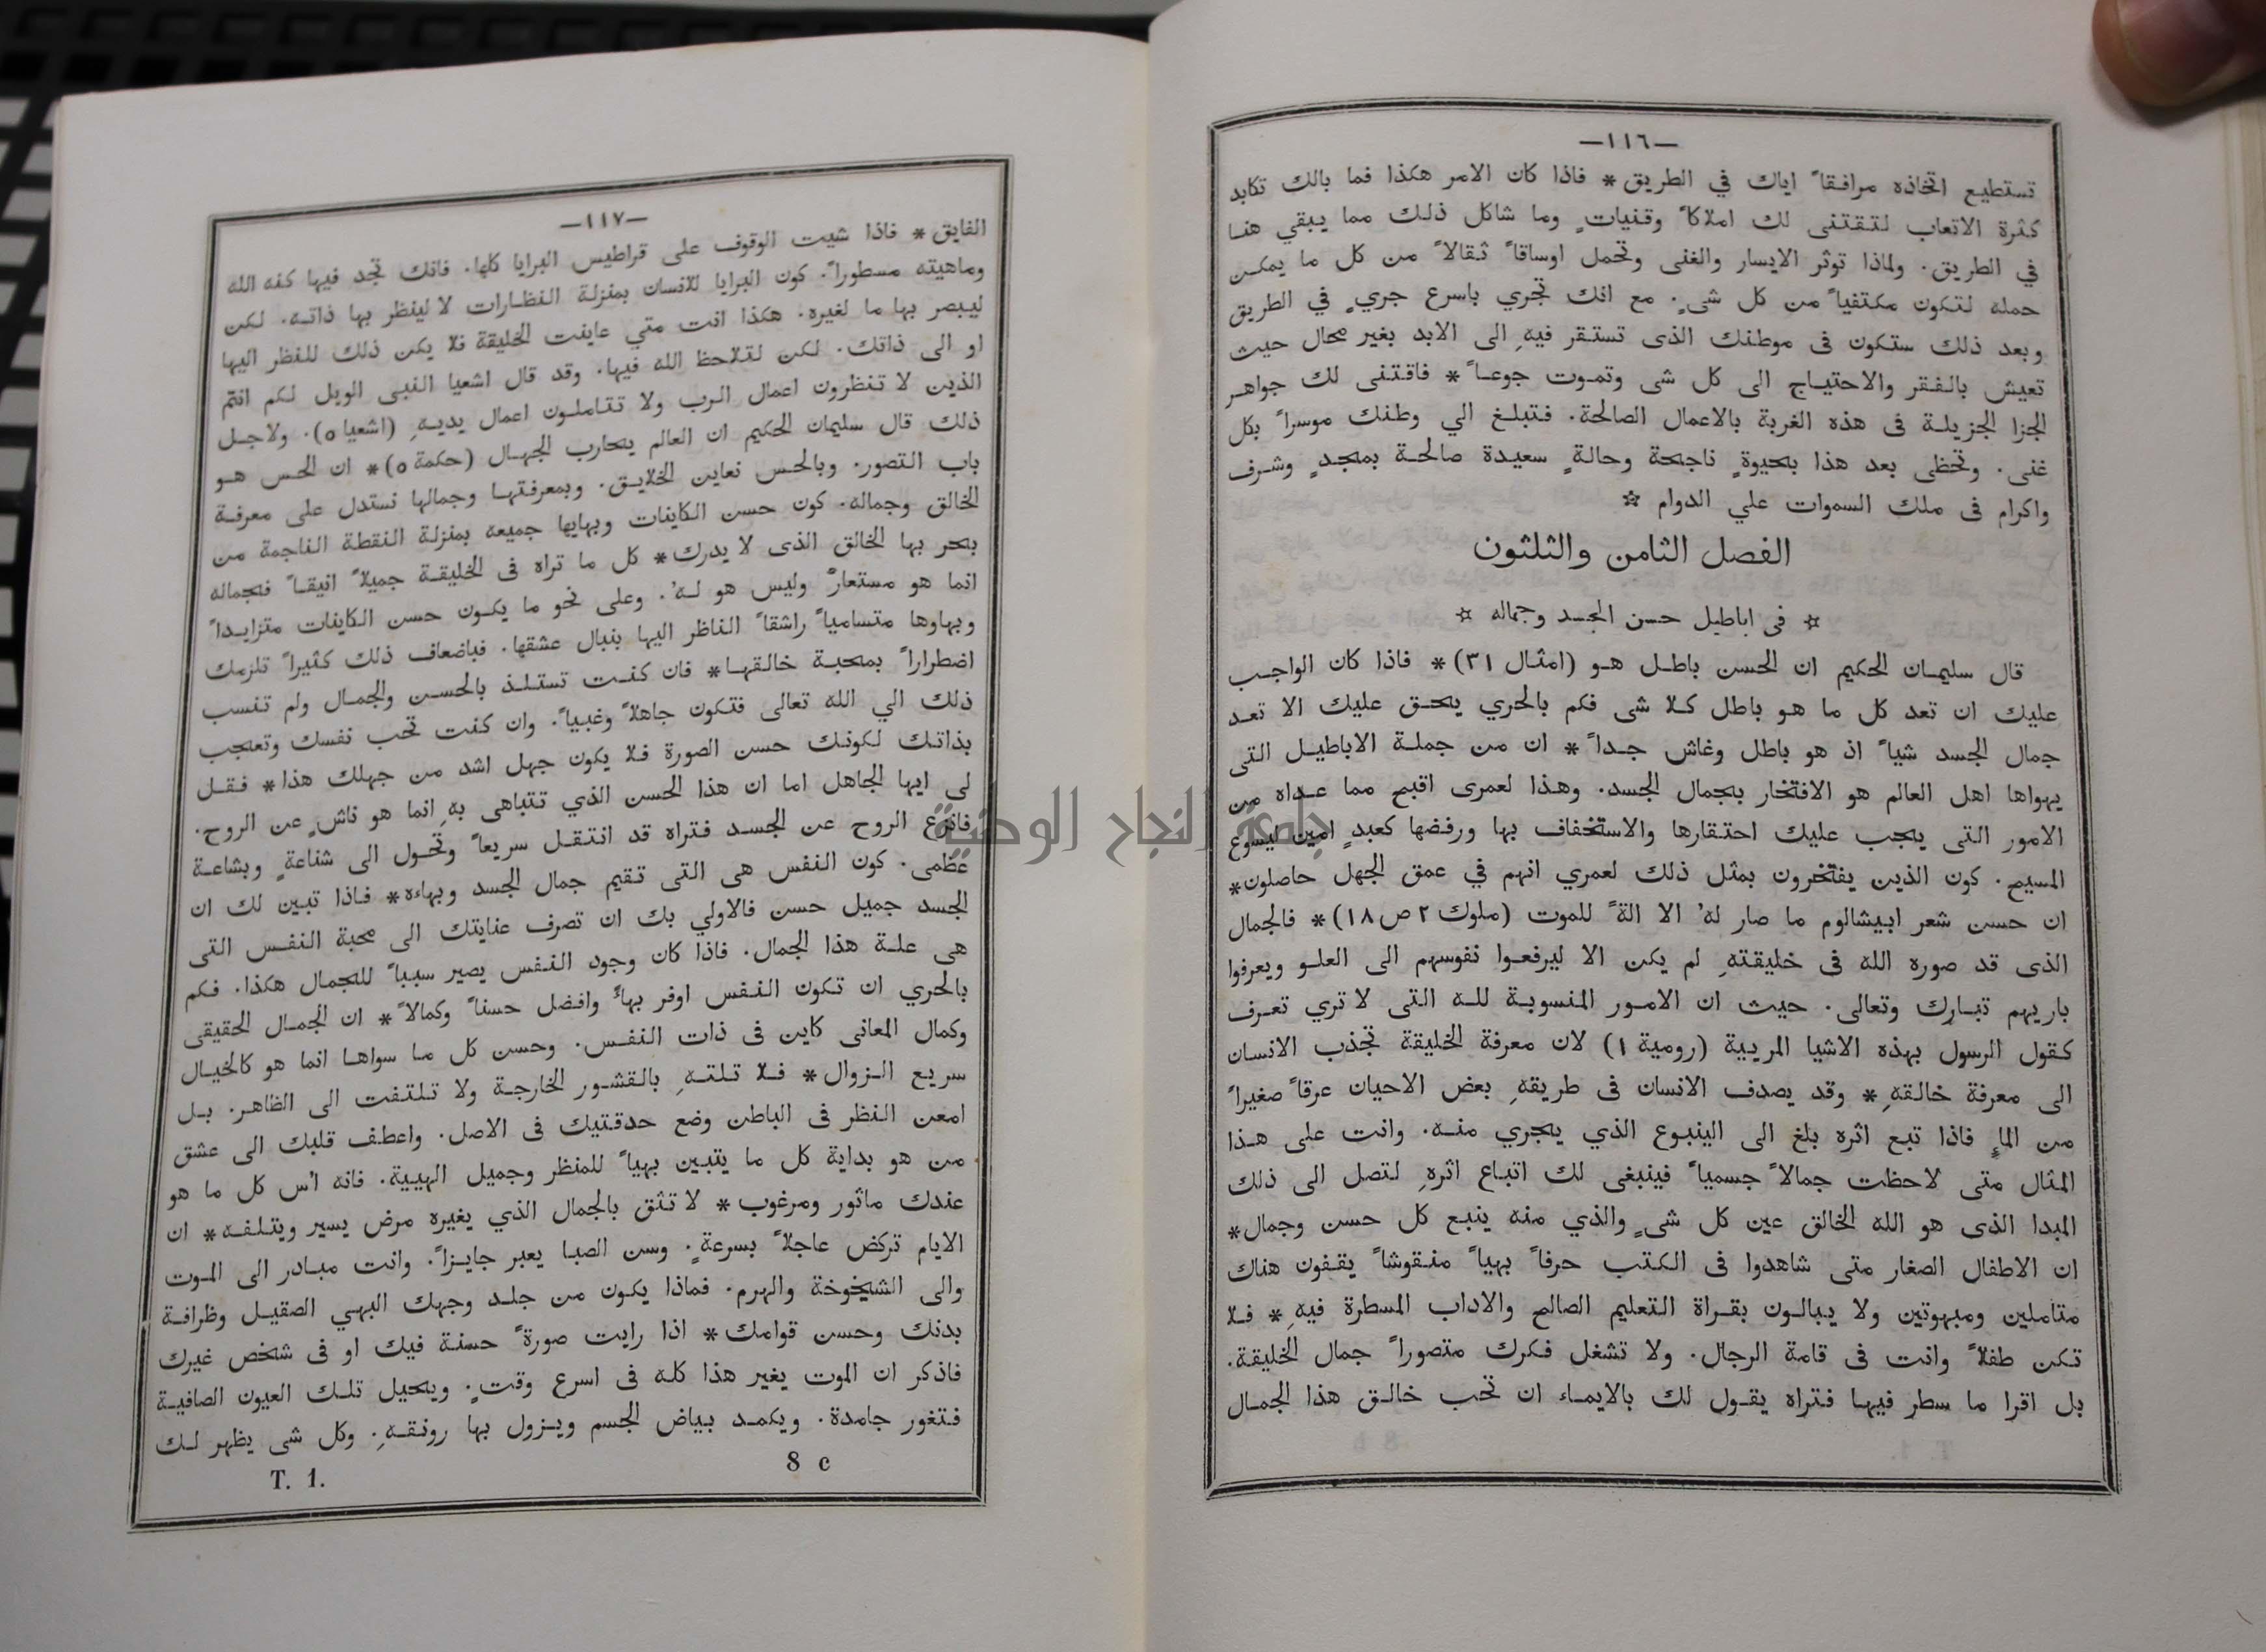 —١١٦—
تستطيع اتخاذه مرافقاً اياك في الطريق* فاذا كان الامر هكذا فما بالك تكابد
كثرة الاتعاب لتقتنى لك املاكاً وقنياتٍ وما شاكل ذلك مما يبقي هنا
في الطريق. ولماذا توثر الايسار والغنى وتحمل اوساقاً ثقالاً من كل ما يمكن
حمله لتكون مكتفياً من كل شىٍ. مع انك تجري باسرع جريٍ في الطريق
وبعد ذلك ستكون فى موطنك الذى تستقر فيهِ الى الابد بغير محال حيث
تعيش بالفقر والاحتياج الى كل شى وتموت جوعاً* فاقتنى لك جواهر
الجزا الجزيلة فى هذه الغربة بالاعمال الصالحة. فتبلغ الي وطنك موسراً بكل
غنى. وتحظى بعد هذا بحيوةٍ ناجحة وحالةٍ سعيدة صالحة بمجدٍ وشرف
واكرام فى ملك السموات علي الدوام ☆
الفصل الثامن والثلثون
☆ فى اباطيل حسن الجسد وجماله ☆
قال سليمان الحكيم ان الحسن باطل هو (امثال ٣١)* فاذا كان الواجب
عليك ان تعد كل ما هو باطل كلا شى فكم بالحري يحق عليك الا تعد
جمال الجسد شياً اذ هو باطل وغاش جداً* ان من جملة الاباطيل التى
يهواها اهل العالم هو الافتخار بجمال الجسد. وهذا لعمرى اقبح مما عداه من
الامور التى يجب عليك احتقارها والاستخفاف بها ورفضها كعبدٍ امين ليسوع
المسيح. كون الذين يفتخرون بمثل ذلك لعمري انهم في عمق الجهل حاصلون*
ان حسن شعر ابيشالوم ما صار لهُ الا الةً للموت (ملوك ٢ ص ١٨)* فالجمال
الذى قد صوره الله فى خليقتهِ لم يكن الا ليرفعوا نفوسهم الى العلو ويعرفوا
باريهم تبارك وتعالى. حيث ان الامور المنسوبة لله التى لا تري تعرف
كقول الرسول بهذه الاشيا المريية (رومية ١) لان معرفة الخليقة تجذب الانسان
الى معرفة خالقهِ* وقد يصدف الانسان فى طريقهِ بعض الاحيان عرقاً صغيراً
من الماءِ فاذا تبع اثره بلغ الى الينبوع الذي يجري منه. وانت على هذا
المثال متى لاحظت جمالاً جسمياً فينبغى لك اتباع اثرهِ لتصل الى ذلك
المبدا الذى هو الله الخالق عين كل شىٍ والذي منه ينبع كل حسن وجمال*
ان الاطفال الصغار متى شاهدوا فى الكتب حرفاً بهياً منقوشاً يقفون هناك
متاملين ومبهوتين ولا يبالون بقراة التعليم الصالح والاداب المسطرة فيهِ* فلا
تكن طفلاً وانت فى قامة الرجال. ولا تشغل فكرك متصوراً جمال الخليقة.
بل اقرا ما سطر فيها فتراه يقول لك بالايماء ان تحب خالق هذا الجمال
—١١٧—
الفايق* فاذا شيت الوقوف على قراطيس البرايا كلها. فانك تجد فيها كنه الله
وماهيته مسطوراً. كون البرايا للانسان بمنزلة النظارات لا لينظر بها ذاته. لكن
ليبصر بها ما لغيره. هكذا انت متي عاينت الخليقة فلا يكن ذلك للنظر اليها
او الى ذاتك. لكن لتلاحظ الله فيها. وقد قال اشعيا النبى الويل لكم انتم
الذين لا تنظرون اعمال الرب ولا تتاملون اعمال يديهِ (اشعيا ٥). ولاجل
ذلك قال سليمان الحكيم ان العالم يحارب الجهال (حكمة ٥)* ان الحس هو
باب التصور. وبالحس نعاين الخلايق. وبمعرفتها وجمالها نستدل على معرفة
الخالق وجماله. كون حسن الكاينات وبهايها جميعه بمنزلة النقطة الناجمة من
بحر بها الخالق الذى لا يدرك* كل ما تراه فى الخليقة جميلاً انيقاً فجماله
انما هو مستعارٌ وليس هو لهُ. وعلى نحو ما يكون حسن الكاينات متزايداً
وبهاوها متسامياً راشقاً الناظر اليها بنبال عشقها. فباضعاف ذلك كثيراً تلزمك
اضطراراً بمحبة خالقها* فان كنت تستلذ بالحسن والجمال ولم تنسب
ذلك الي الله تعالى فتكون جاهلاً وغبياً. وان كنت تحب نفسك وتعجب
بذاتك لكونك حسن الصورة فلا يكون جهل اشد من جهلك هذا* فقل
لى ايها الجاهل اما ان هذا الحسن الذي تتباهى بهِ انما هو ناشٍ عن الروح.
فانزع الروح عن الجسد فتراه قد انتقل سريعاً وتحول الى شناعةٍ وبشاعة
عظمى. كون النفس هى التى تقيم جمال الجسد وبهاءه* فاذا تبين لك ان
الجسد جميل حسن فالاولي بك ان تصرف عنايتك الى محبة النفس التى
هى علة هذا الجمال. فاذا كان وجود النفس يصير سبباً للجمال هكذا. فكم
بالحري ان تكون النفس اوفر بهاً وافضل حسناً وكمالاً* ان الجمال الحقيقى
وكمال المعانى كاين فى ذات النفس. وحسن كل ما سواها انما هو كالخيال
سريع الزوال* فلا تلتهِ بالقشور الخارجة ولا تلتفت الى الظاهر. بل
امعن النظر فى الباطن وضع حدقتيك فى الاصل. واعطف قلبك الى عشق
من هو بداية كل ما يتبين بهياً للمنظر وجميل الهيية. فانه اُس كل ما هو
عندك ماثور ومرغوب* لا تثق بالجمال الذي يغيره مرض يسير ويتلفه* ان
الايام تركض عاجلاً بسرعةٍ. وسن الصبا يعبر جايزاً. وانت مبادر الى الموت
والى الشيخوخة والهرم. فماذا يكون من جلد وجهك البهي الصقيل وظرافة
بدنك وحسن قوامك* اذا رايت صورةً حسنة فيك او فى شخص غيرك
فاذكر ان الموت يغير هذا كله فى اسرع وقتٍ. ويحيل تلك العيون الصافية
فتغور جامدة. ويكمد بياض الجسم ويزول بها رونقهِ. وكل شى يظهر لك
T. 1. 8 c
جامعة النجاح الوطنية